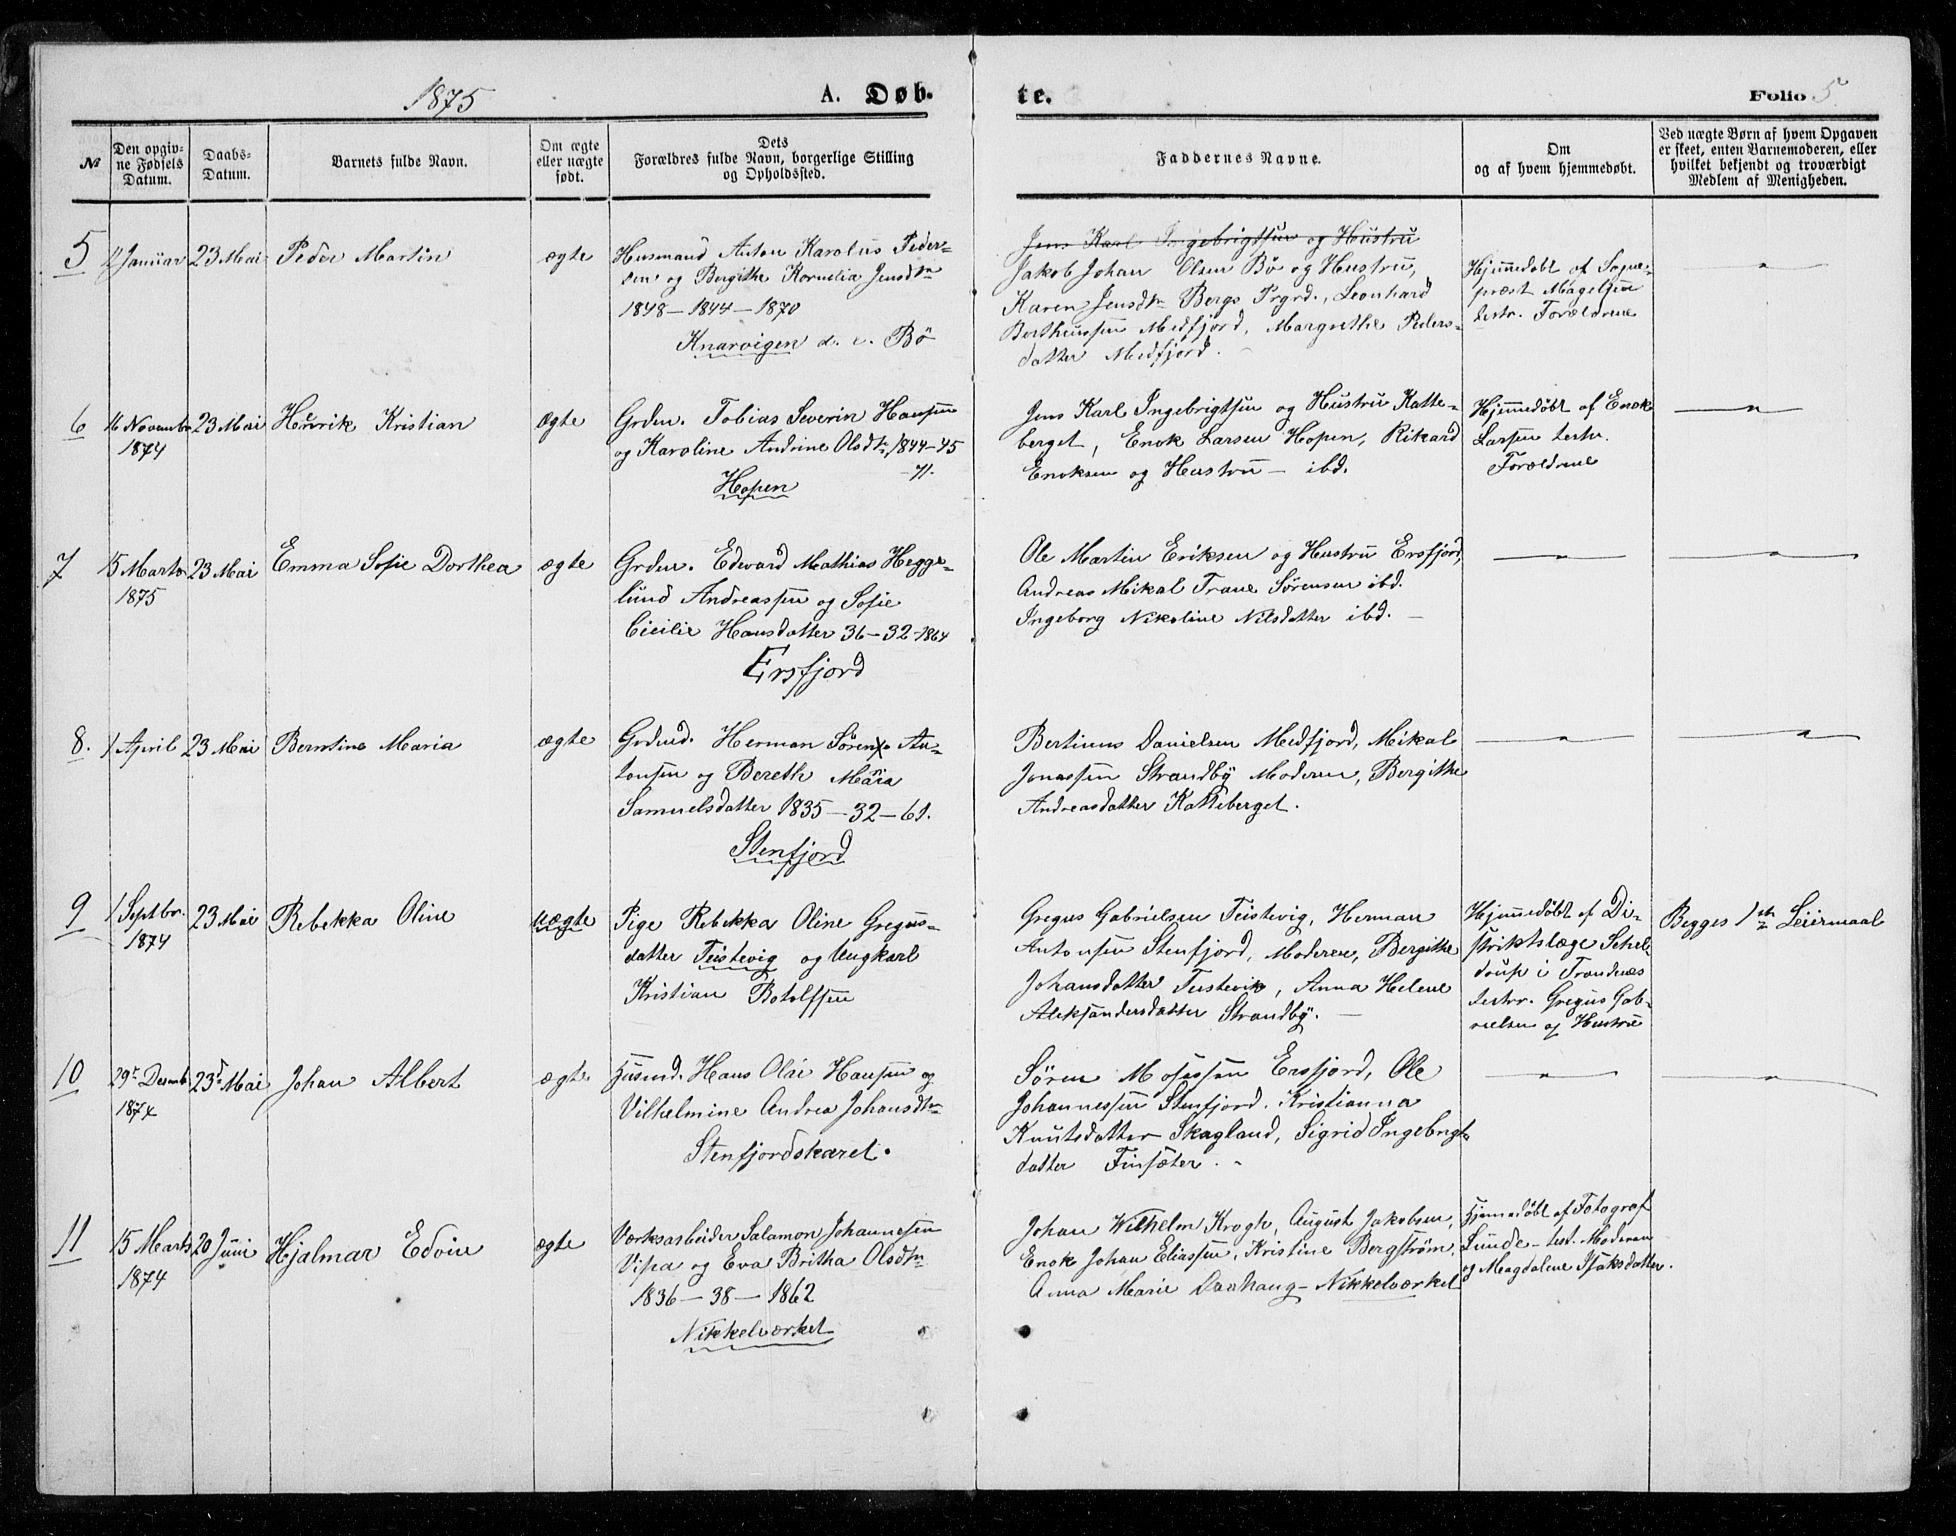 1875
A. Døb-
te.
Folio 5
№
Den opgiv-
ne Fødsels
Datum.
Daabs-
Datum.
Barnets fulde Navn.
Om ægte
eller uægte
født.
Dets
Forældres fulde Navn, borgerlige Stilling
og Opholdssted.
Faddernes Navne.
Om
og af hvem hjemmedøbt.
Ved uægte Børn af hvem Opgaven
er skeet, enten Barnemoderen, eller
hvilket bekjendt og troværdigt
Medlem af Menigheden.
5
Januar
23 Mai
Peder Martin
ægte
Husmand Anton Karolus Peder-
sen og Bergithe Kornelia Jensdtr
1848 - 1844 - 1870
Knarvigen u. Bö
Jens Karl Ingebrigtsen og Hustru
Jakob Johan Olsen Bö og Hustru,
Karen Jensdtr Bergs Prgrd., Leonhard
Bertheussen Medfjord, Margrethe Peders-
datter Medfjord.
Hjemmedøbt af Sogne-
præst Magelssen
testr. Forældrene
6
16 Novembr
1874
23 Mai
Henrik Kristian
Ægte
Grdm. Tobias Severin Hansen
og Karoline Andrine Olsdtr 1844-45
-71.
Hopen
Jens Karl Ingebrigtsen og Hustru Katte-
berget, Enok Larsen Hopen, Rikard
Enoksen og Hustru - ibd.
Hjemmedøbt af Enok
Larsen testr.
Forældrene
7
15 Marts
1875
23 Mai
Emma Sofie Dorthea
ægte
Grdm. Edvard Mathias Hegge-
lund Andreassen og Sofie
Cicilie Hansdatter 36-32-1864
Ersfjord
Ole Martin Eriksen og Hustru Ersfjord,
Andreas Mikal Trane Sørensen ibd.
Ingeborg Nikoline Nilsdatter ibd. -
8.
1 April
23 Mai
Berntine Maria
ægte
Grdmd. Herman Søren An-
tonsen og Bereth Maria
Samuelsdatter 1835-32-61.
Stenfjord
Bertinus Danielsen Medfjord, Mikal
Jonassen Strandby Moderen, Bergithe
Andreasdatter Katteberget.
9
1 Septbr.
1874
23 Mai
Rebekka Oline
uægte
Pige Rebekka Oline Gregus-
datter Teistevig og Ungkarl
Kristian Botolfsen
Gregus Gabrielsen Teistevig, Herman
Antonsen Stenfjord, Moderen, Bergithe
Johansdatter Teistevik, Anna Helene
Aleksandersdatter Strandby. -
Hjemmedøbt af Di-
striktslæge Schel-
drup i Trondenæs
testr. Gregus Gab-
rielsen og Hustru
Begges 1ste Leiermaal
10
29 Decemb
1874
23d Mai
Johan Albert
ægte
Husmd. Hans Olai Hansen og
Vilhelmine Andrea Johansdtr
Stenfjordskaret.
Søren Mosessen Ersfjord, Ole
Johannessen Stenfjord. Kristianna
Knutsdatter Skagland, Sigrid Ingebrigt-
datter Finsæter.
11
15 Marts
1874
20 Juni
Hjalmar Edvin
ægte
Værksarbeider Salamon Johannesen
Vipa og Eva Britha Olsdtr
1836 - 38 - 1862
Nikkelværket
Johan Wilhelm Krogh, August Jakobsen,
Enok Johan Eliassen, Kristine Bergstrøm,
Anna Marie Daahaug - Nikkelværket
Hjemmedøbt af Fotograf
Lunde - test. Moderen
og Magdalene Isaksdatter.